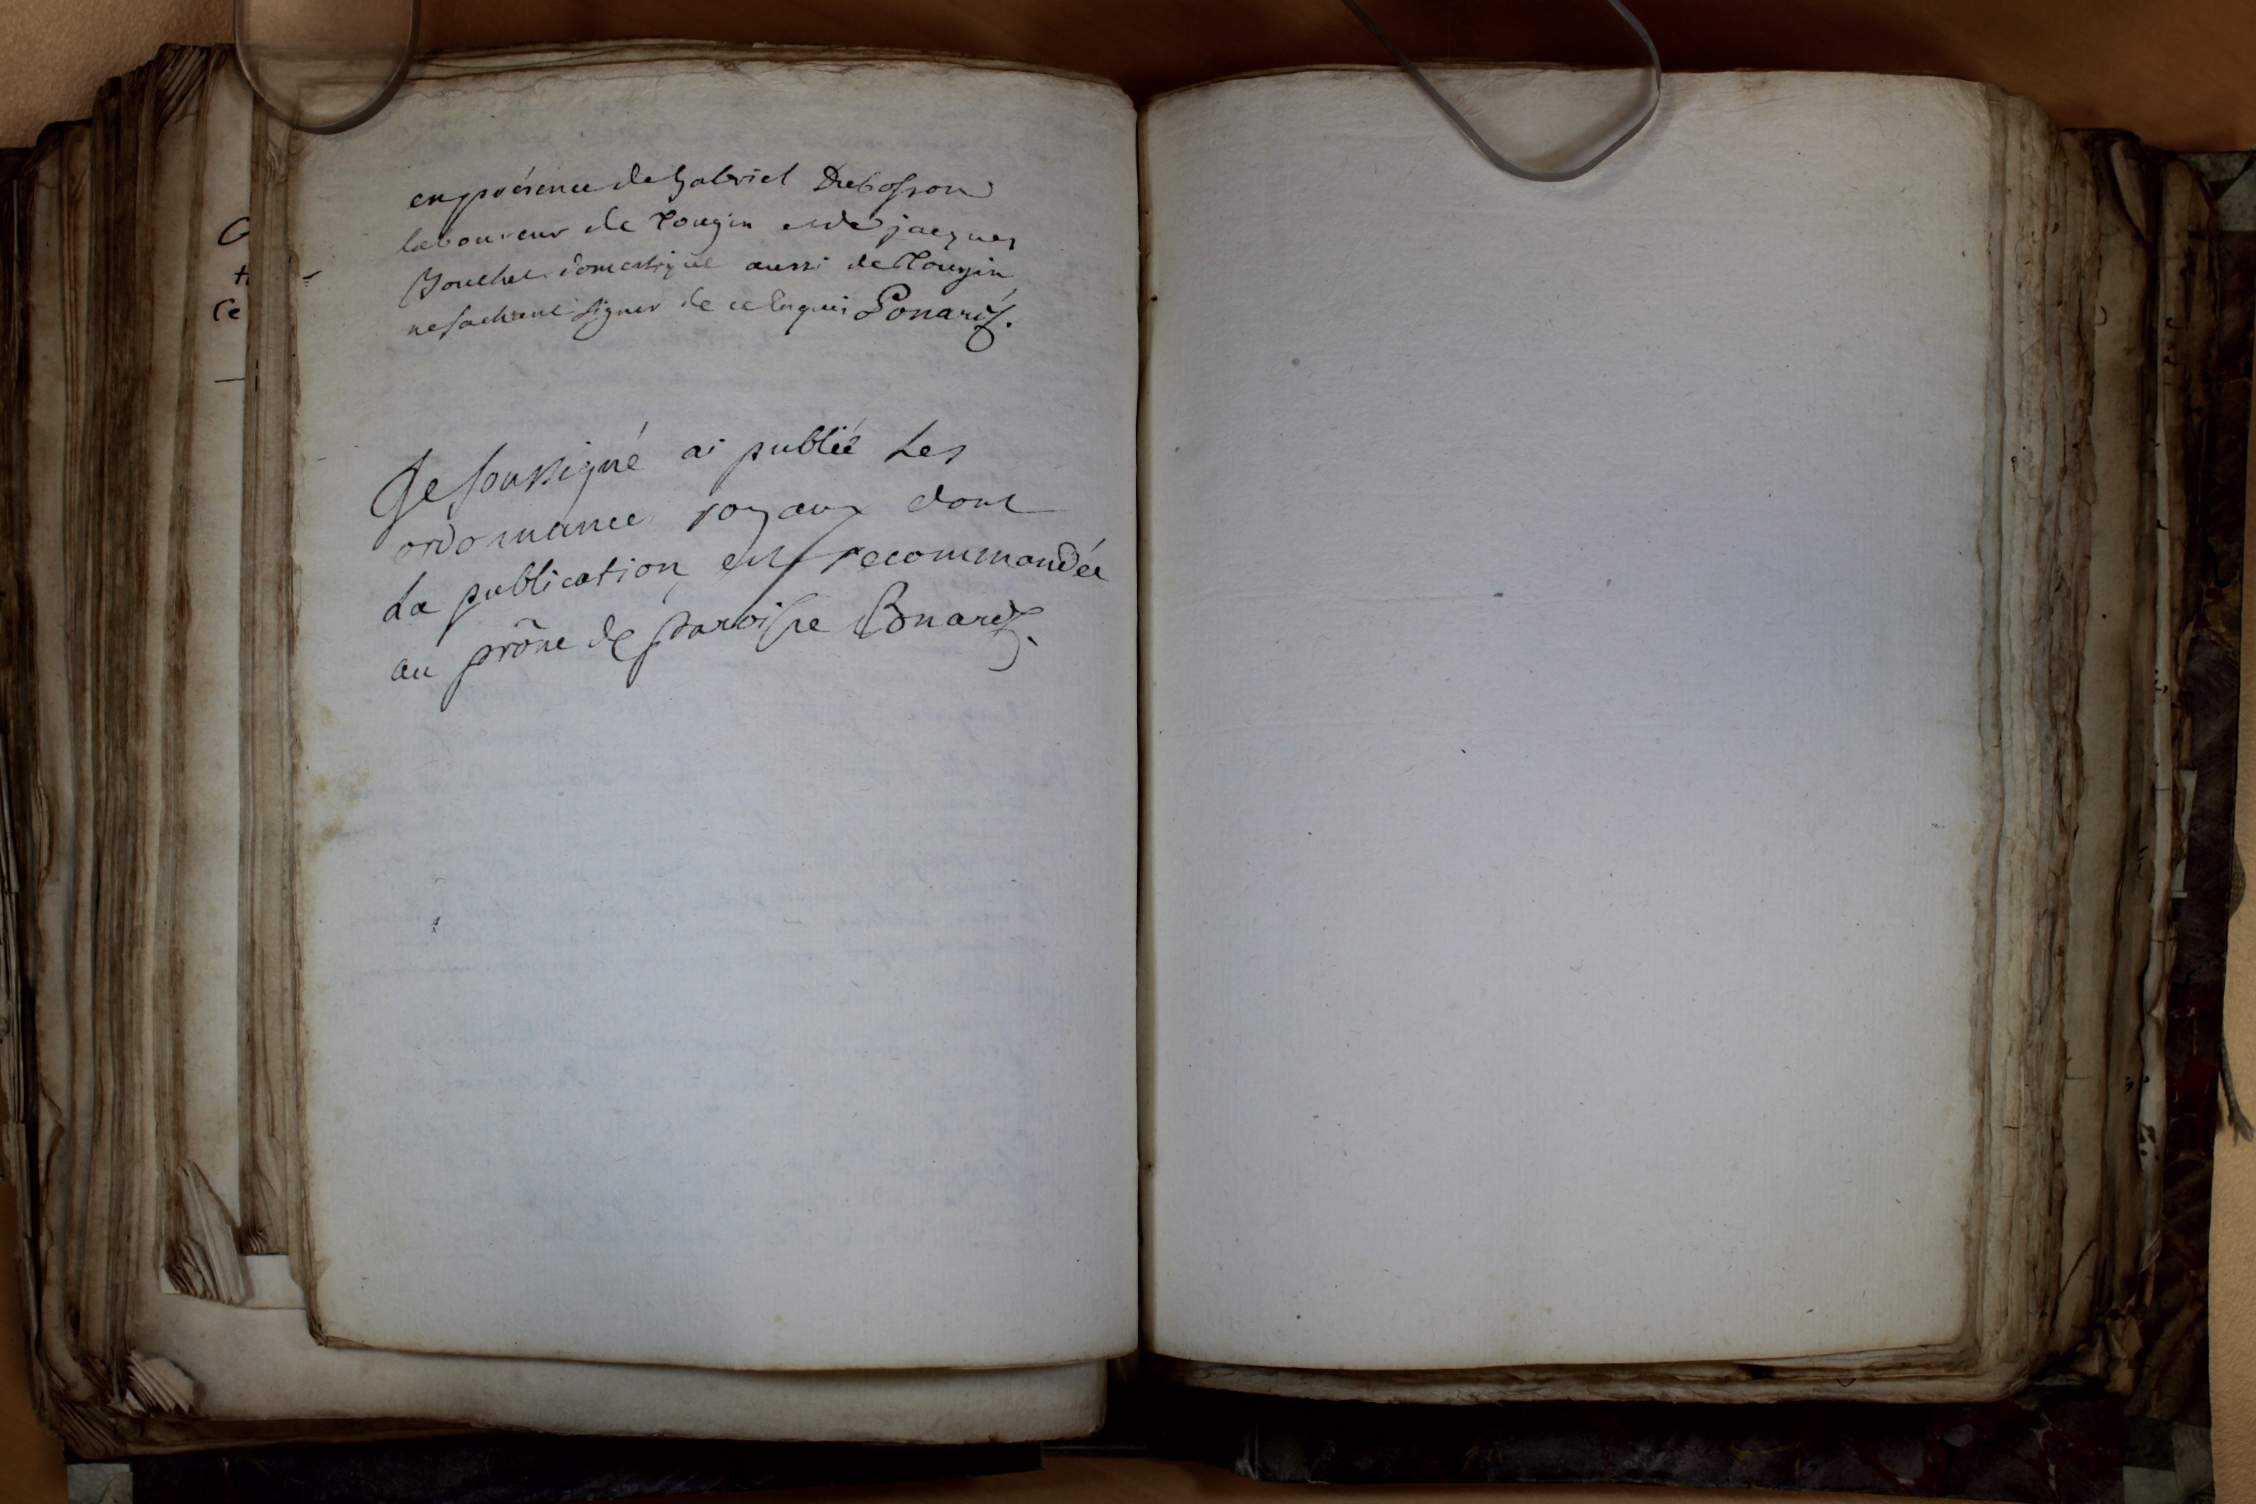 en présence de Gabriel Dubosson
laboureur de Tougin et de jacques
Bouchet domestique aussi de Tougin
ne sachant signer de ce Enquis Ponard.
Je soussigné ai publié Les
ordonnance royaux dont
La publication est recommandée
au prône de Paroisse Ponard.